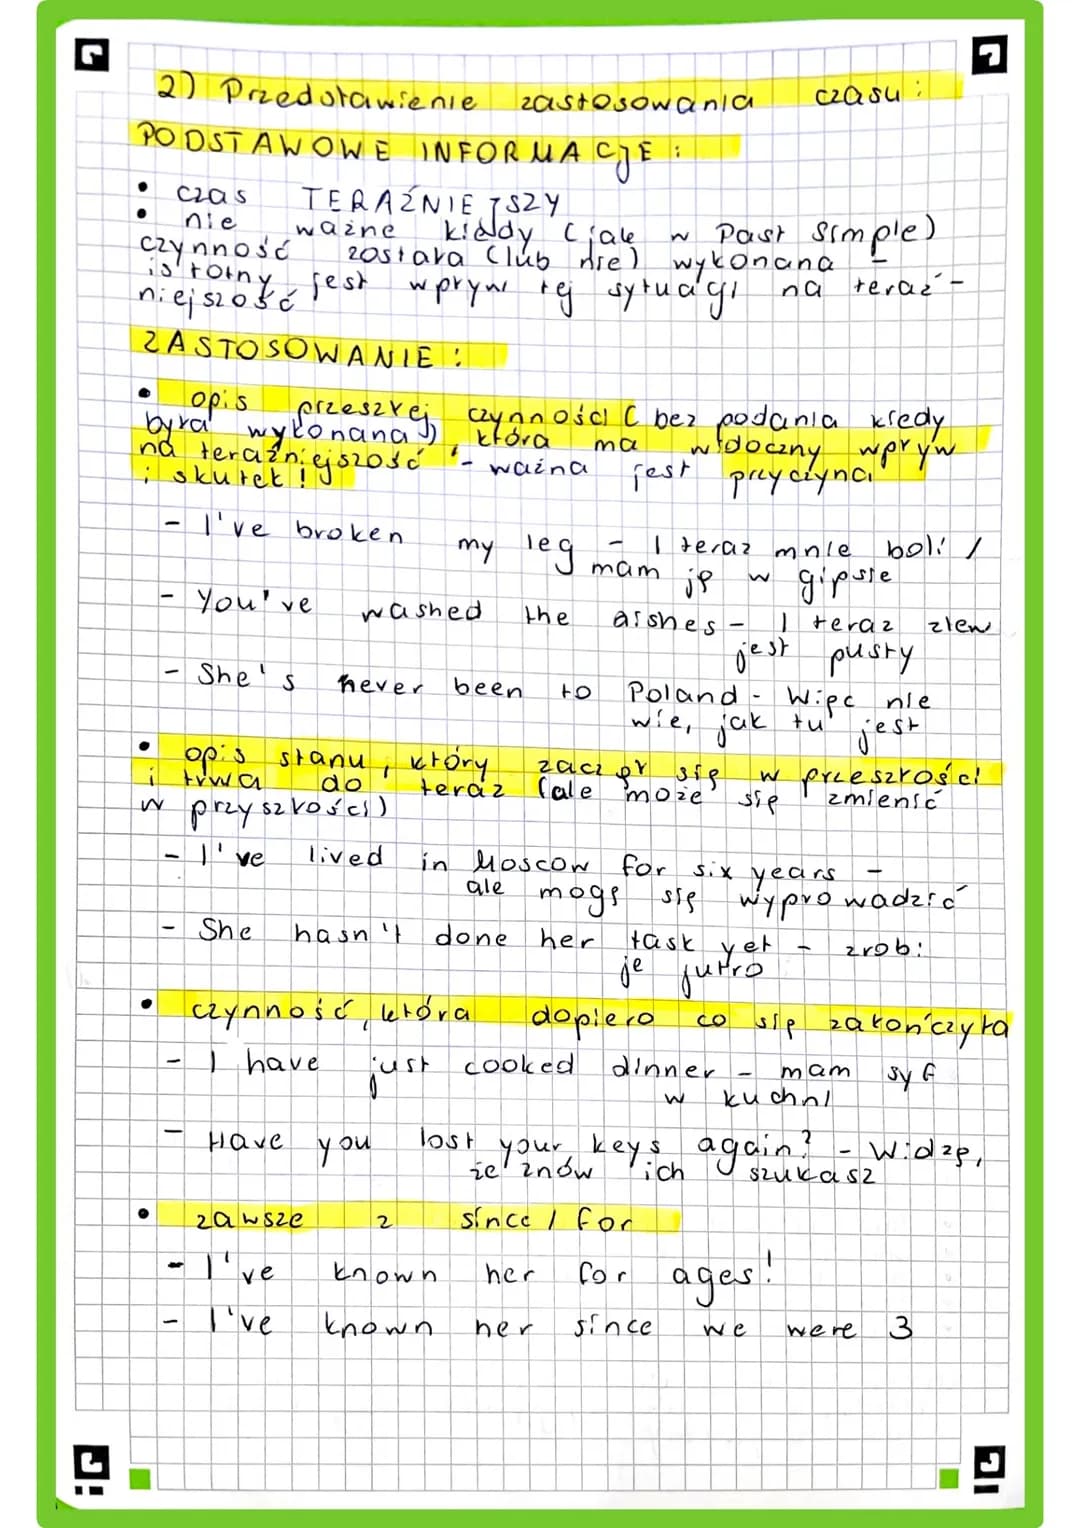 2) Przedstawienie zastosowania czasu:
PODSTAWOWE INFORMACJE:
• czas TERAŹNIEJSZY
• nie ważne kiedy (jak w Past Simple)
czynność została (lub nie) wykonana -
istotny jest wpływ tej sytuacji na teraź-
niejszość
ZASTOSOWANIE:
• opis przeszłej czynności (bez podania kiedy
była wykonana), która ma widoczny wpływ
na teraźniejszość - ważna jest przyczyna
i skutek!
- I've broken my leg - I teraz mnie boli /
mam ją w gipsie
- You've washed the dishes - I teraz zlew
jest pusty
- She's never been to Poland - Więc nie
wie, jak tu jest
• opis stanu, który zaczął się w przeszłości
i trwa do teraz (ale może się zmienić
w przyszłości)
- I've lived in Moscow for six years -
ale mogę się wyprowadzić
- She hasn't done her task yet - zrobi
je jutro
• czynność, która dopiero co się zakończyła
- I have just cooked dinner - mam syf
w kuchni
- Have you lost your keys again? - Widzę,
że znów ich szukasz
• zawsze z since / for
- I've known her for ages!
- I've known her since we were 3